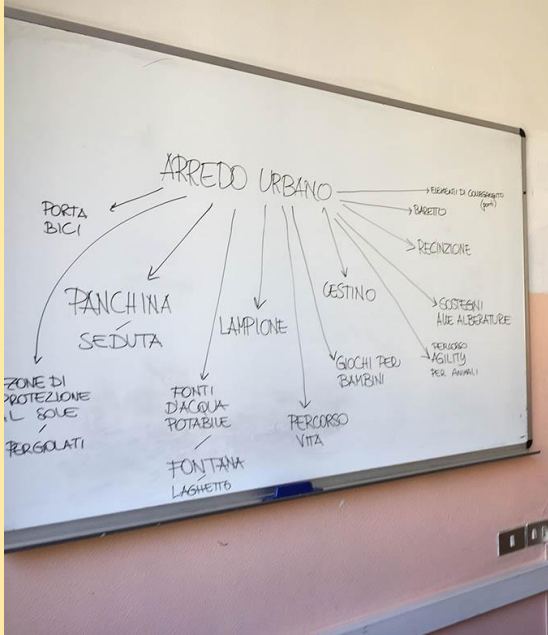 ARREDO URBANO
PORTA
BICI
ZONE DI
PROTEZIONE
L SOLE
/
PERGOLATI
PANCHINA
/
SEDUTA
FONTI
D'ACQUA
POTABILE
/
FONTANA
/
LAGHETTO
LAMPIONE
PERCORSO
VITA
GIOCHI PER
BAMBINI
CESTINO
PERCORSO
AGILITY
PER ANIMALI
SOSTEGNI
ALLE ALBERATURE
RECINZIONE
BARETTO
ELEMENTI DI COLLEGAMENTO
(ponti)